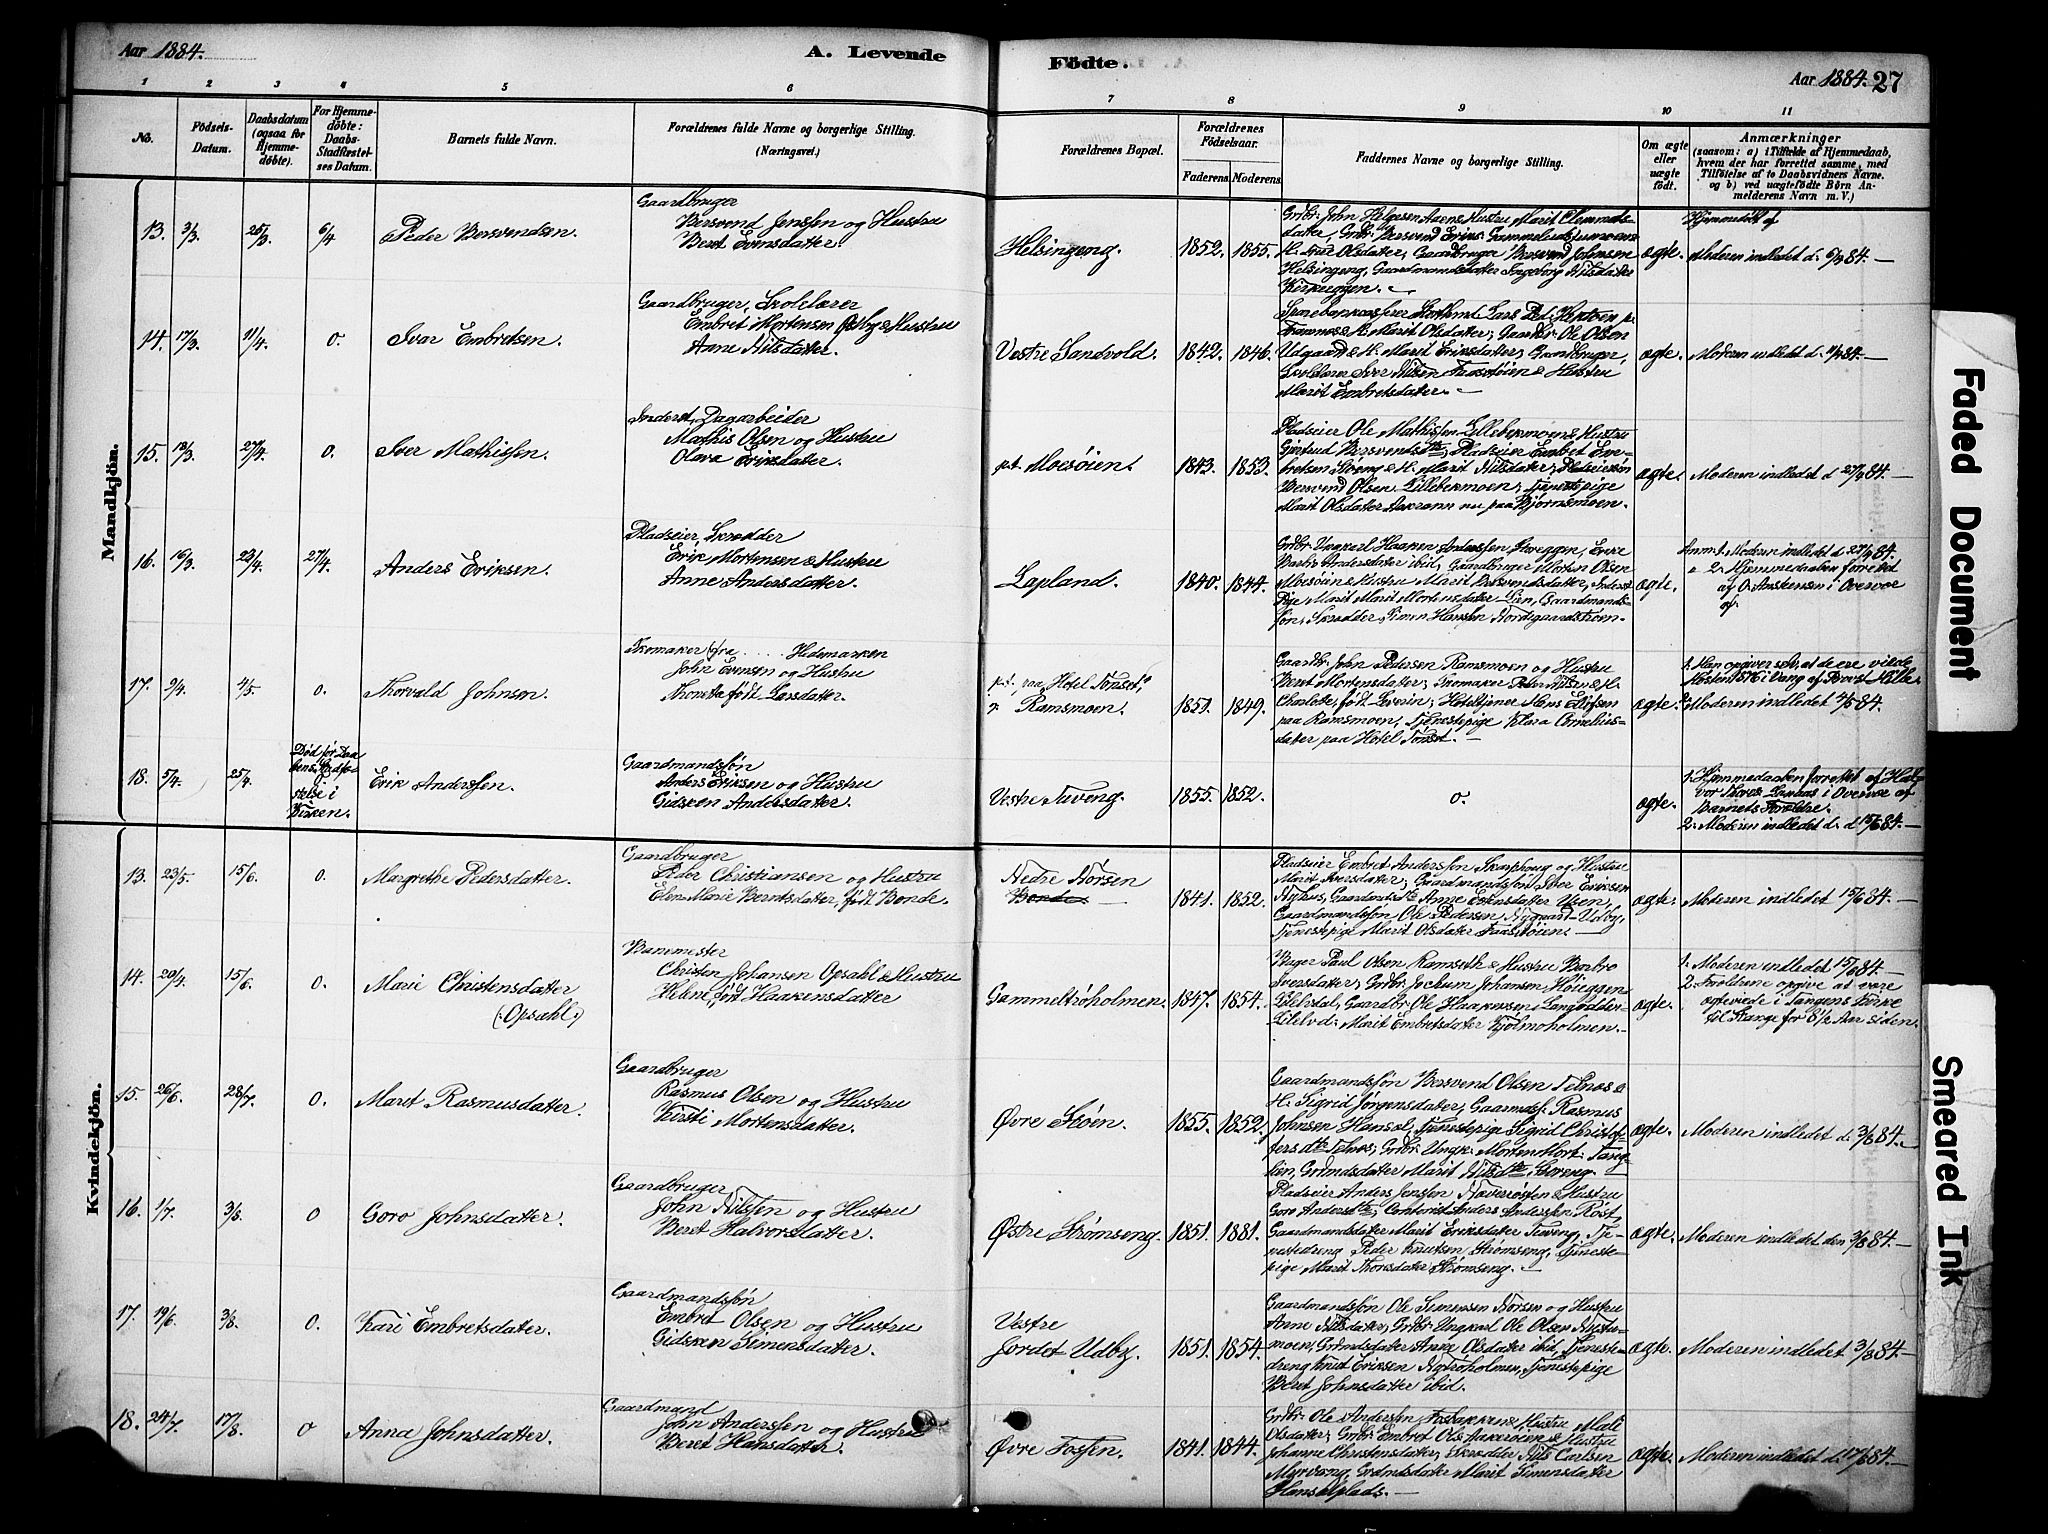 Aar 1884.
A. Levende
Födte.
Aar 1884. 27
1 2 3 4 5 6 7 8 9 10 11
No.
Födsels-
Datum.
Daabsdatum
(ogsaa for
Hjemme-
døbte).
For Hjemme-
döbte:
Daabs-
Stadfæstel-
ses Datum.
Barnets fulde Navn.
Forældrenes fulde Navne og borgerlige Stilling.
(Næringsvei.)
Forældrenes Bopæl.
Forældrenes
Födselsaar.
Faderens. Moderens.
Faddernes Navne og borgerlige Stilling.
Om ægte
eller
uægte
født.
Anmærkninger
(saasom: a) i Tilfælde af Hjemmedaab,
hvem der har forrettet samme, med
Tilföielse af to Daabsvidners Navne.
og b) ved uægtefödte Börn An-
melderens Navn m. V.)
Mandkjön.
13. 3/3 25/3 6/4 Peder Bersvendsen.
Gaardbruger
Bersvend Jensen og Hustru
Beret Evensdatter.
Helsingeng. 1852. 1855.
Grbr. John Helgesen Aaen & Hustru Marit Clemmets-
datter, Grbr. Bersvend Eriks.
Olsdatter, Gaardbruger Bersvend Johnsen
Helsingeng, Gaardmandsdatter Ingeborg Nilsdatter
Kirkeyggen.
ægte.
Hjemmedöbt af
Moderen indledet d. 6/4 84.
14. 17/3 11/4 0. Ivar Embretsen.
Gaardbruger, Skolelærer
Embret Mortensen Udby & Hustru
Anne Nilsdatter.
Vestre Sandvold. 1842. 1846.
& H. Marit Olsdatter, Gaardbr. Ole Olsen
Udgaard & H. Marit Eriksdatter, Gaardbruger,
Skolelærer Iver Nilsen Faastöien & Hustru
Marit Embretsdatter.
ægte. Moderen indledet d. 11/4 84.
15. 13/3 27/4 0. Iver Mathissen.
Inderst, Dagarbeider
Mathis Olsen og Hustru
Olava Eriksdatter.
p.t. Moesöien. 1843. 1853.
Pladseier Ole Mathissen Lillebekmoen & Hustru
Gjertrud Bersvendsdtr, Pladseier Embret Em-
bretsen & H. Marit Nilsdatter, Pladseiersön
Bersvend Olsen Lillebekmoen, Tjenestepige
Marit Olsdatter Aakrann nu paa Bjørnsmoen.
ægte. Moderen indledet d 27/4 84.
16. 16/3 23/4 27/4 Anders Eriksen.
Pladseier, Skrædder
Erik Mortensen & Hustru
Anne Andersdatter.
Lapland. 1840. 1844.
Grbr. Ungkarl Haagen Anderssen
Andersdatter ibid, Gaardbruger Morten Olsen
Moesöien & Hustru Marit Bersvendsdatter, Inderst
Pige Marit Mortensdatter Lien, Gaardmands-
sön, Skrædder Simen Hansen Nordigaardstrøm.
ægte.
Anm 1. Moderen indledet d 27/4 84.
2. Hjemmedaaben forrettet
af O. Amstensen i Overvær
af:
17. 2/4 4/5 0. Thorvald Johnsen.
Skomaker fra . . . . . Hedemarken
John Evensen og Hustru
Thonetta född Larsdatter.
p.t. paa Hotel Tønset,
Ramsmoen. 1851. 1849.
Gaardbr. John Pedersen Ramsmoen og Hustru
Beret Mortensdatter, Skomaker Peder Nilsen & H.
Charlotte, født Severin, Hoteltjener Hans Ellefsen
paa Ramsmoen, Tjenestepige Klara Cornelius-
datter paa Hotel Tønset.
ægte.
1. Han opgiver selv, at de ere viede
Høsten 1876 i Vang af Provst Hille
2. Moderen indledet 4/5 84.
18. 5/4 25/4
Död før Daa-
bens Stadfæ-
stelse i
Kirken.
Erik Anderssen.
Gaardmandssøn
Anders Eriksen og Hustru
Gidsken Andersdatter.
Vestre Tuveng. 1855. 1852. 0. ægte.
1. Hjemmedaaben forrettet af Hal-
vor Thores. i Overvær af
Barnets Forældre.
2. Moderen indledet d. d 15/6 84.
Kvindekjön.
13. 23/5 15/6 0. Margrethe Pedersdatter.
Gaardbruger
Peder Christiansen og Hustru
Elen Marie Berntsdatter, født Bonde.
Nedre Norsen
Bonde. 1841. 1852.
Pladseier Embret Anderssen Skarphoug og Hustru
Marit Iversdatter, Gaardmandssön Iver Eriksen
Nyhus, Gaardmdsdtr Anne Estensdatter Uren,
Gaardmandssøn Ole Pedersen Nygaard Udby,
Tjenestepige Marit Olsdatter Faastöien.
ægte. Moderen indledet 15/6 84.
14. 20/4 15/6 0. Marie Christensdatter
(: Opsahl.)
Banemester
Christen Johansen Opsahl & Hustru
Helene, født Haakensdatter
Gammeltrøholmen. 1847. 1854.
Bager Paul Olsen Ramseth & Hustru Barbro
Iversdatter, Grdbr. Jochum Johansen Høieggen
Lilelvdal, Gaardbr. Ole Haakensen
Lilelvd. Marit Embretsdatter Kjølmoholmen.
ægte.
1. Moderen indledet 15/6 84.
2. Forældrene opgive at være
ægteviede i Tangens Kirke
til Stange for 8 1/2 Aar siden.
15. 26/6 28/7 0. Maret Rasmusdatter.
Gaardbruger
Rasmus Olsen og Hustru
Kirsti Mortensdatter.
Øvre Støen. 1855. 1852.
Gaardmandssøn Bersvend Olsen Telnes &
H. Sigrid Jørgensdatter, Gaarmdsf. Rasmus
Johnsen Hansøl, Tjenestepige Sigrid Christof-
fersdtr Telnes, Grbr. Ungk. Morten Mort. Tang-
lien, Grdmdsdatter Marit Nilsdtr Storeng.
ægte. Moderen indledet d. 3/8 84.
16. 1/7 3/8 0 Goro Johnsdatter.
Gaardbruger
John Nilssen og Hustru
Beret Halvorsdatter.
Østre Strømseng. 1851. 1881.
Pladseier Anders Jenssen Næverrøsten & Hustru
Goro Andersdtr, Contorist Anders Anderssen Röst,
Gaardmandsdatter Marit Eriksdatter Tuveng, Tje-
nestedreng Peder Knutsen Strømseng, Tjeneste-
pige Marit Thorsdatter Strømseng.
ægte. Moderen indledet den 3/8 84.
17. 19/6 3/8 0. Kari Embretsdater.
Gaardmandssøn
Embret Olsen og Hustru
Gidsken Simensdatter.
Vestre
Jordet Udby. 1851. 1854.
Gaardmandssön Ole Simensen Norsen og Hustru
Anne Nilsdatter, Grdbr. Ungkarl Ole Olsen Nystu-
moen, Grdmdsdatter Anne Olsdatter ibid, Tjeneste-
dreng Knut Eriksen Nytrøholmen, Tjenestepige
Beret Johnsdatter ibid.
ægte. Moderen indledet 3/8 84.
18. 24/7 17/8 0 Anna Johnsdatter.
Gaardmand
John Anderssen og Hustru
Beret Hansdatter.
Øvre Fossen. 1841. 1844.
Grdbr. Ole Anderssen Fosbakken & Hustru Mali
Olsdatter, Grdbr. Embret Ols. Aakerøien & Hustru
Johanne Christensdatter, Skrædder Nils Carlsen
Myrvang, Grdmdsdatter Marit Simensdatter
Hanselplads.
ægte. Moderen indledet d. 17/8 84.
Faded Document
Smeared Ink